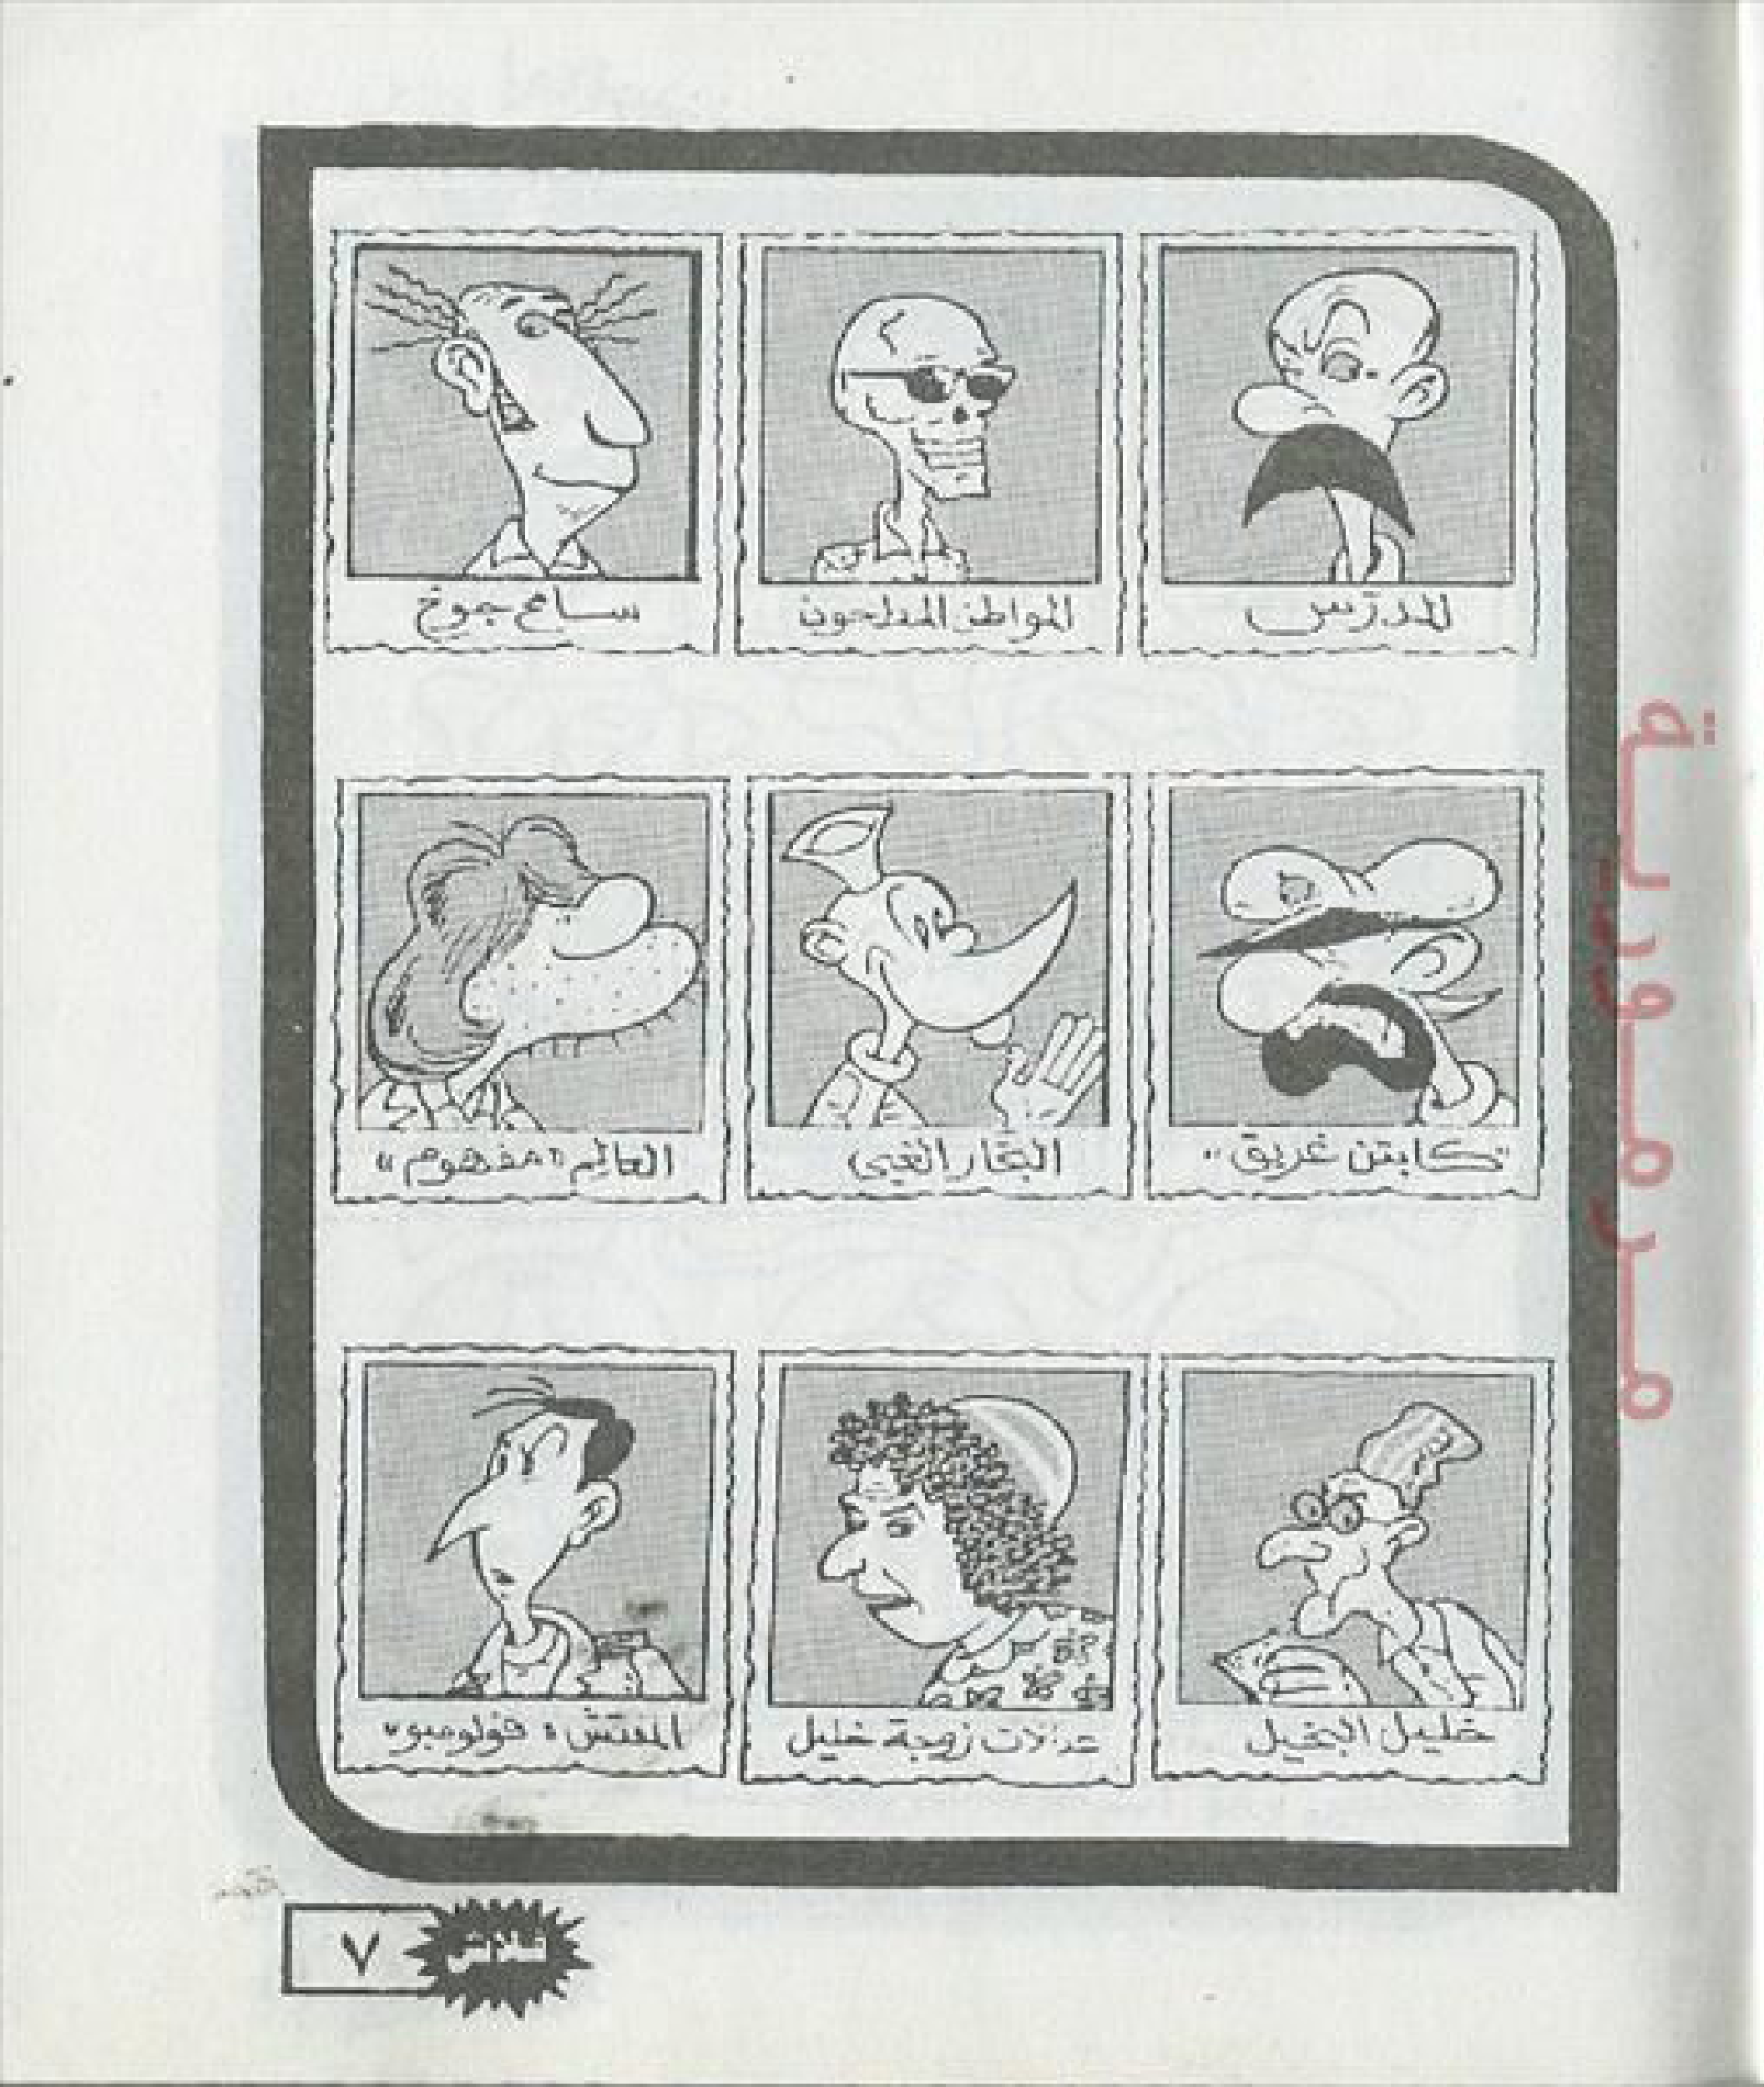 المدرّس
المواطن المطحون
سامح جوخ
"كابتن غريق"
البحّار الغبى
العالِم «مفهوم»
خليل البخيل
عدالات زوجة خليل
المفتش «قولومبو»
مرمورية
٧
فلاش